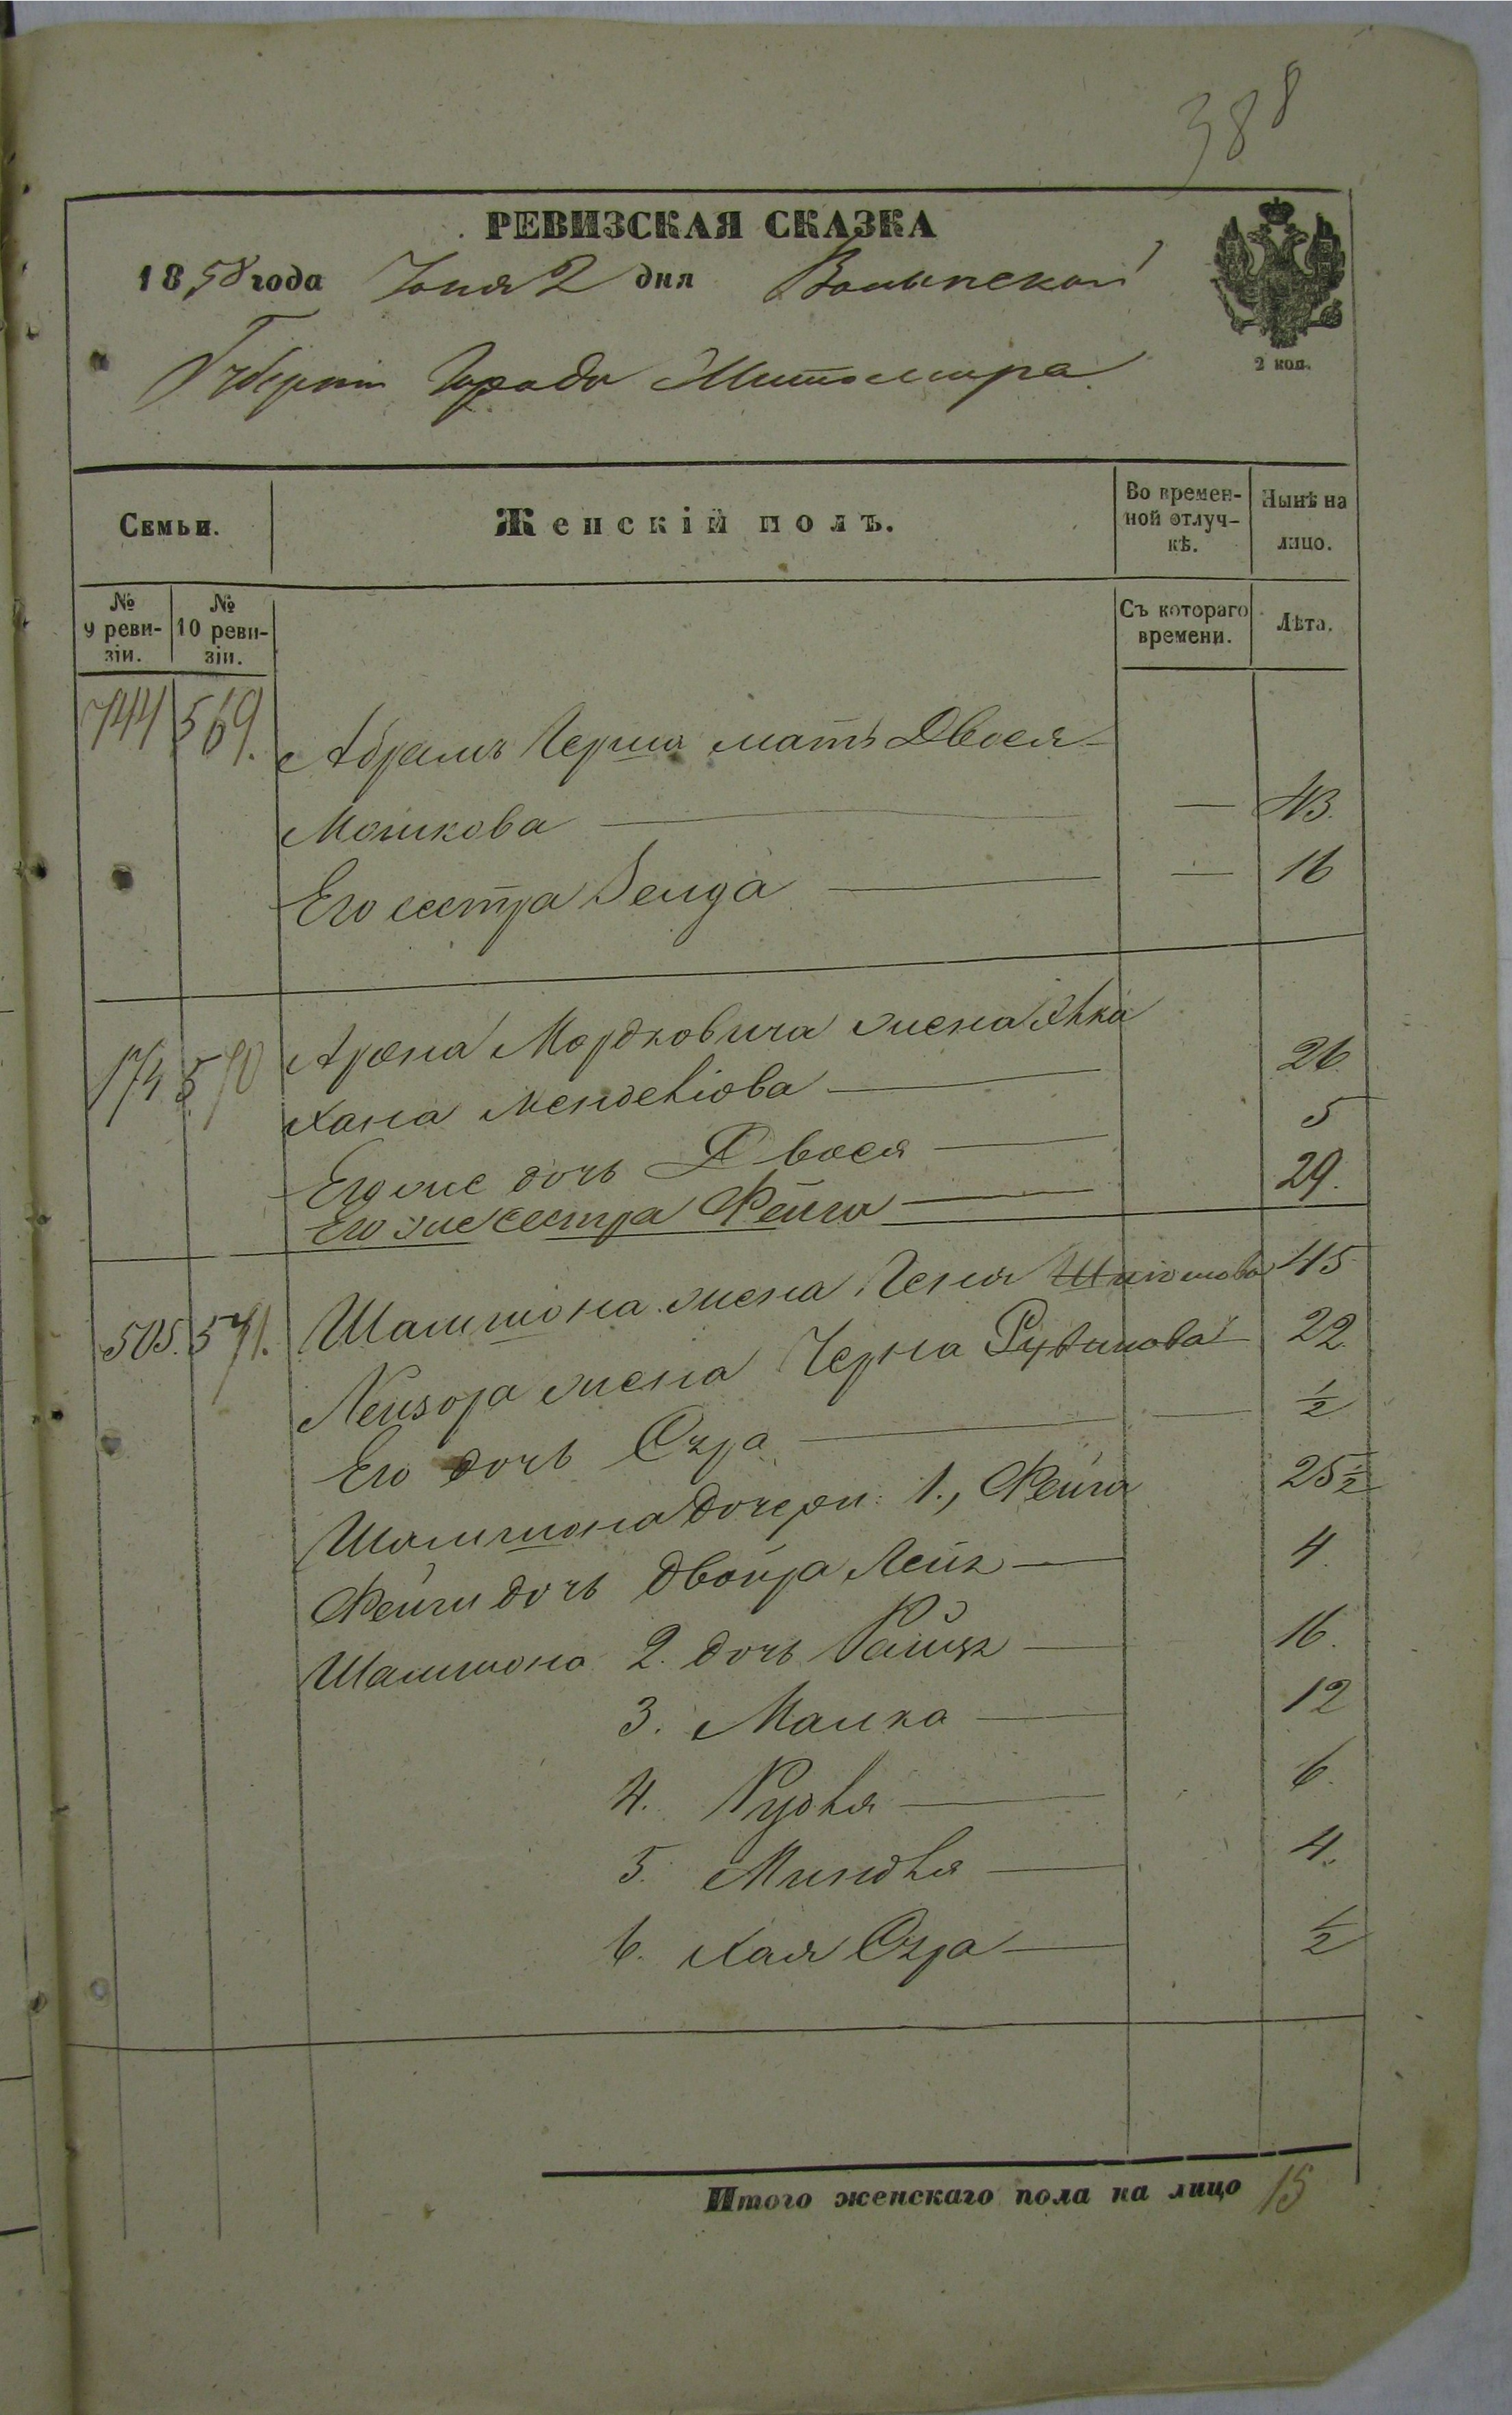 388
РЕВИЗСКАЯ СКАЗКА
1858 года Іюня 2 дня Волынской
Губерніи Города Житомира
2 коп.
Семьи.
Женскій полъ.
Во времен-
ной отлуч-
кѣ.
Нынѣ на
лицо.
№
9 реви-
зіи.
№
10 реви-
зіи.
Съ котораго
времени.
Лѣта.
744 569. Абрамъ Герша мать Двося
Мошкова — — 43.
Его сестра Бейла — — 16
573 570 Арона Мордковича жена
Хана Менделіова — 26
Его же дочь Двося — 5
Его же сестра Фейга — 29.
505. 571. Шамшона жена Геня 45
Лейзора жена Черна Рувинова 22.
Его дочь Сура — — 1/2
Шамшона дочери: 1., Фейга 25 1/2
Фейги дочь Двойра Лея — 4.
Шамшона 2. дочь — 16.
3. Малка — 12
4. Рухля — 6.
5. Миндля — 4.
6. Хая Сура — 1/2
Итого женскаго пола на лицо 15